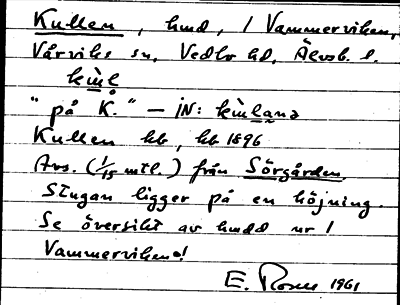 Kullen, hmd, / Vammerviken,
Vårviks sn, Vedbo hd, Älvsb. l.
kùl
"på K." – iN: kùlana
Kullen hb, hb 1896
Avs. (1/15 mtl.) från Sörgården
Stugan ligger på en höjning.
Se översikt av hmdd nr 1
Vammerviken!
E. 1961